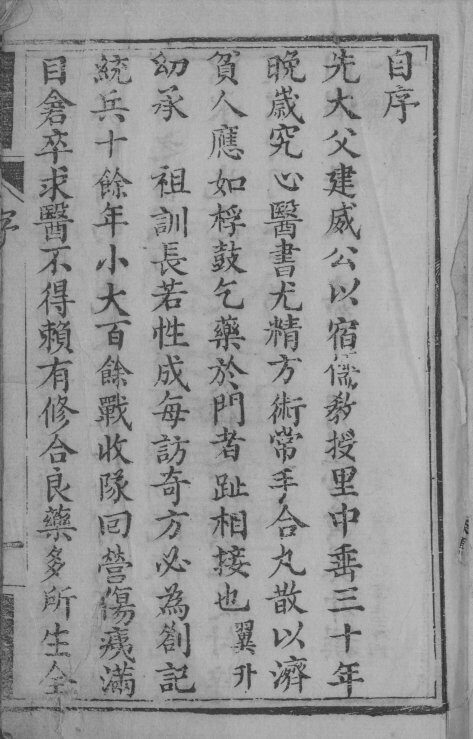 自序
先大父建威公以宿儒教授里中垂三十年
晚歲究心醫書尤精方術常手合丸散以濟
貧人應如桴鼓乞藥於門者趾相接也翼升
幼承　祖訓長若性成每訪奇方必為劄記
統兵十餘年小大百餘戰收隊回營傷痍滿
目倉卒求醫不得賴有修合良藥多所生全
序
一